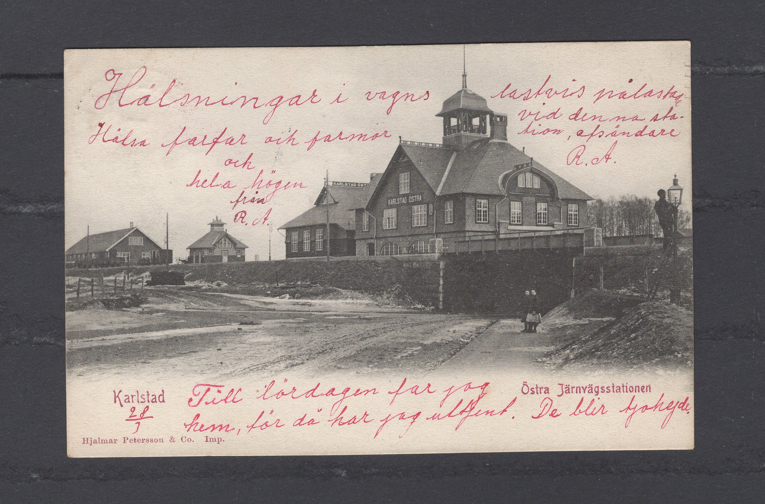 Hälsningar i vagns lastvis pålastade
vid denna sta-
tion, afsändare
R. A.
Hälsa farfar och farmor
och
hela högen
från
R. A.
KARLSTAD ÖSTRA
Karlstad
28/3
Östra Järnvägsstationen
Till lördagen far jag
hem, för då har jag uttjent. De blir tjohejdo
Hjalmar Petersson & Co. Imp.